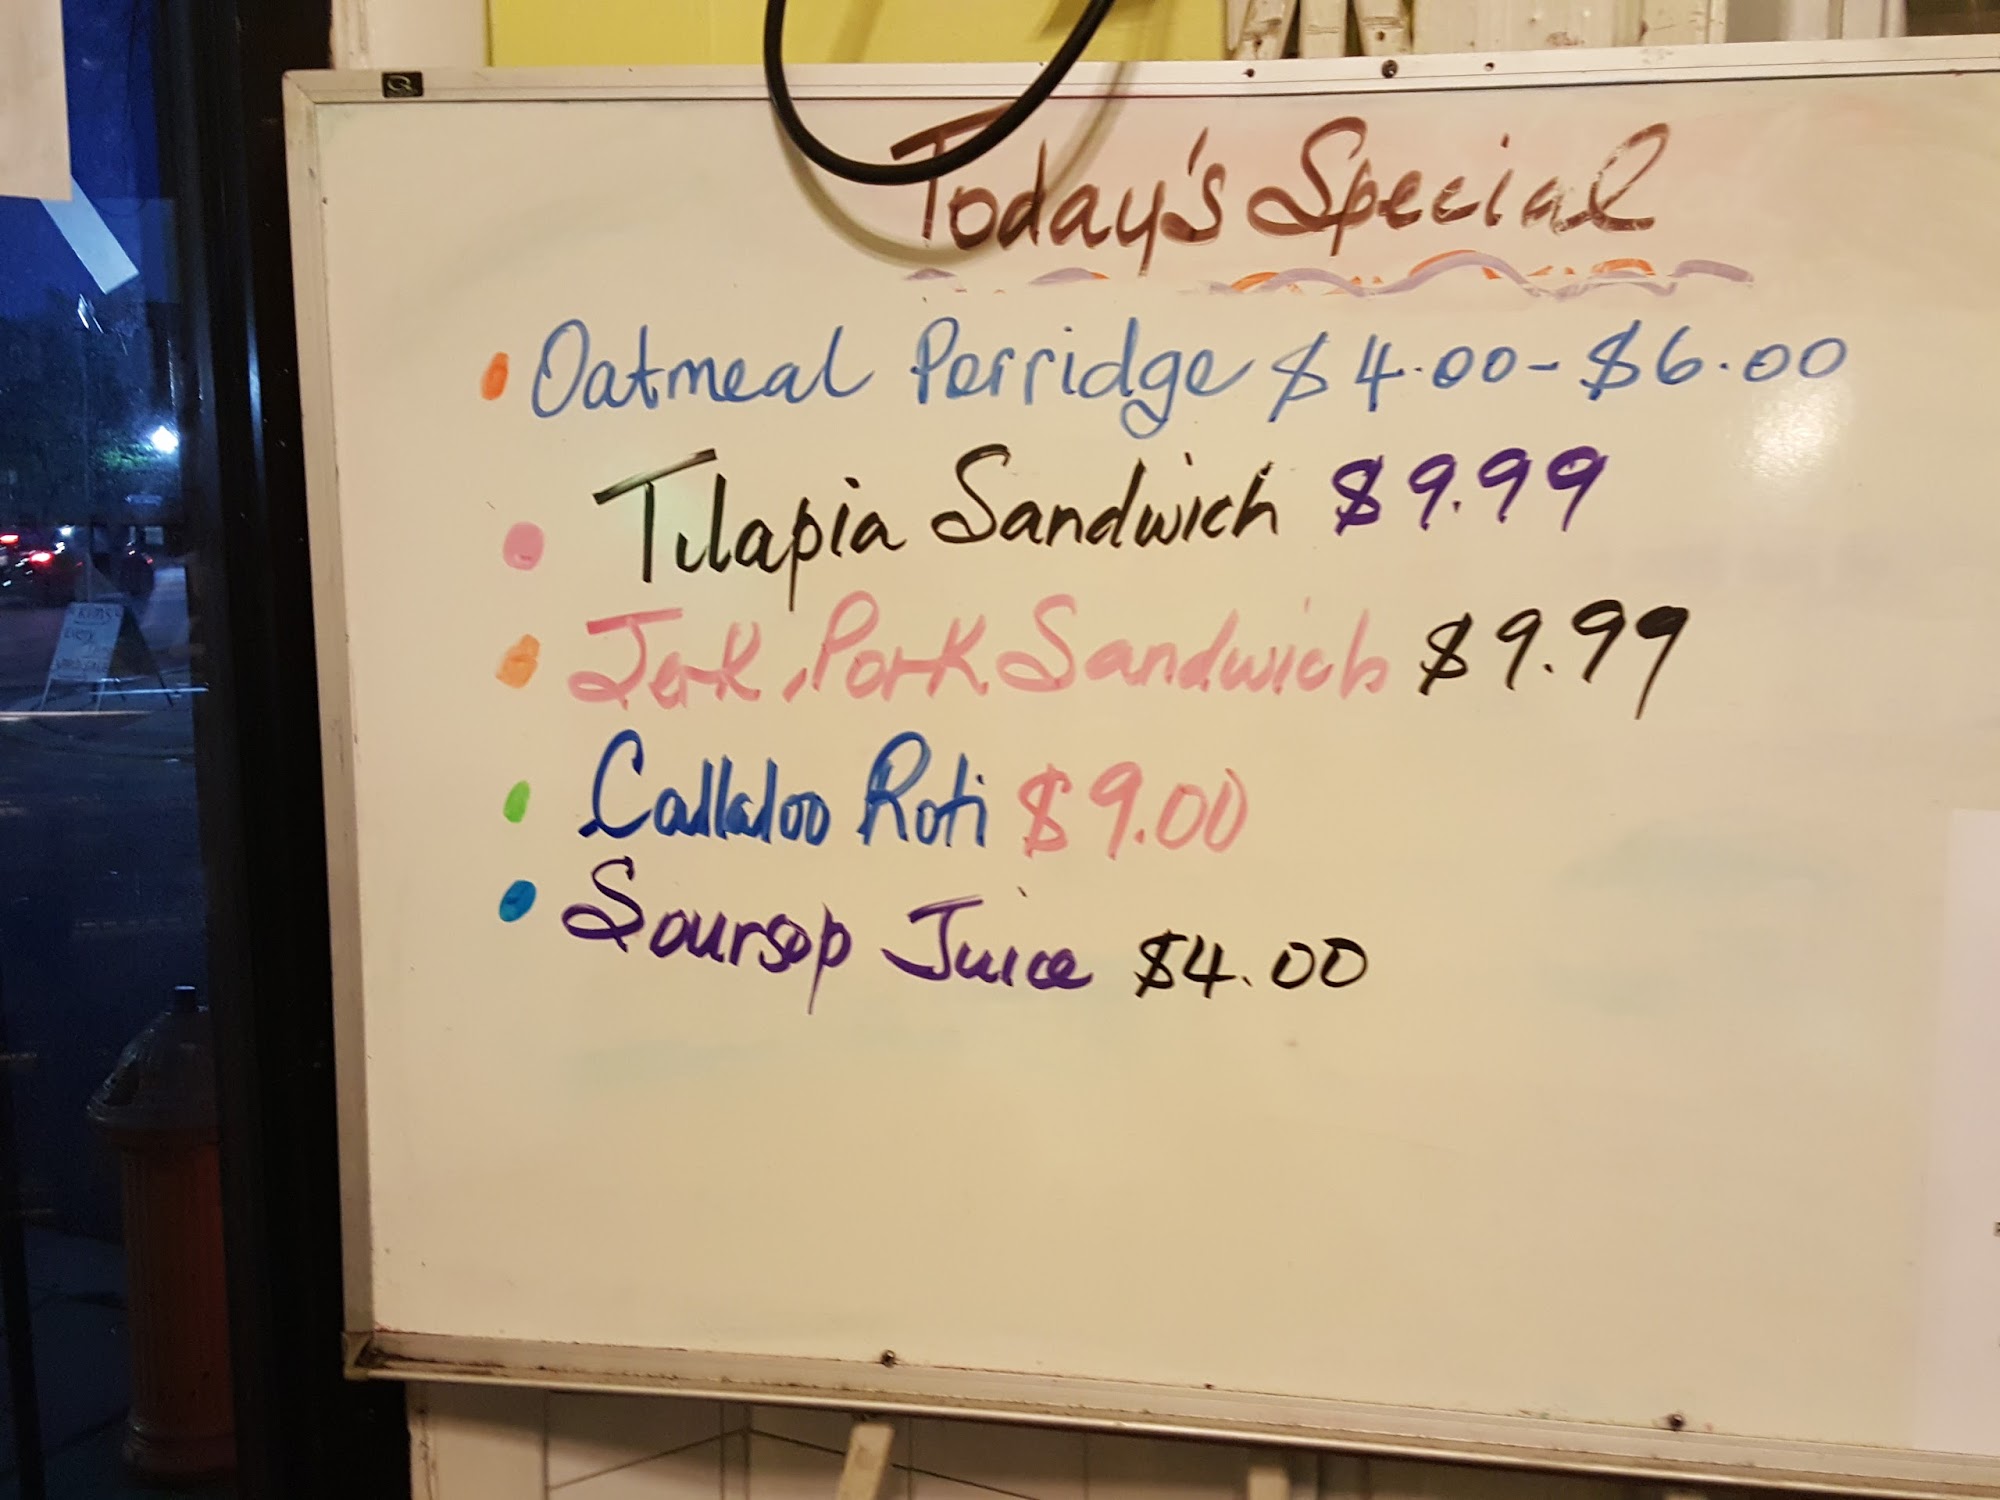 Today's Special
Oatmeal Porridge $4.00-$6.00
Tilapia Sandwich $9.99
Jerk Pork Sandwich $9.99
Callaloo Roti $9.00
Soursop Juice $4.00